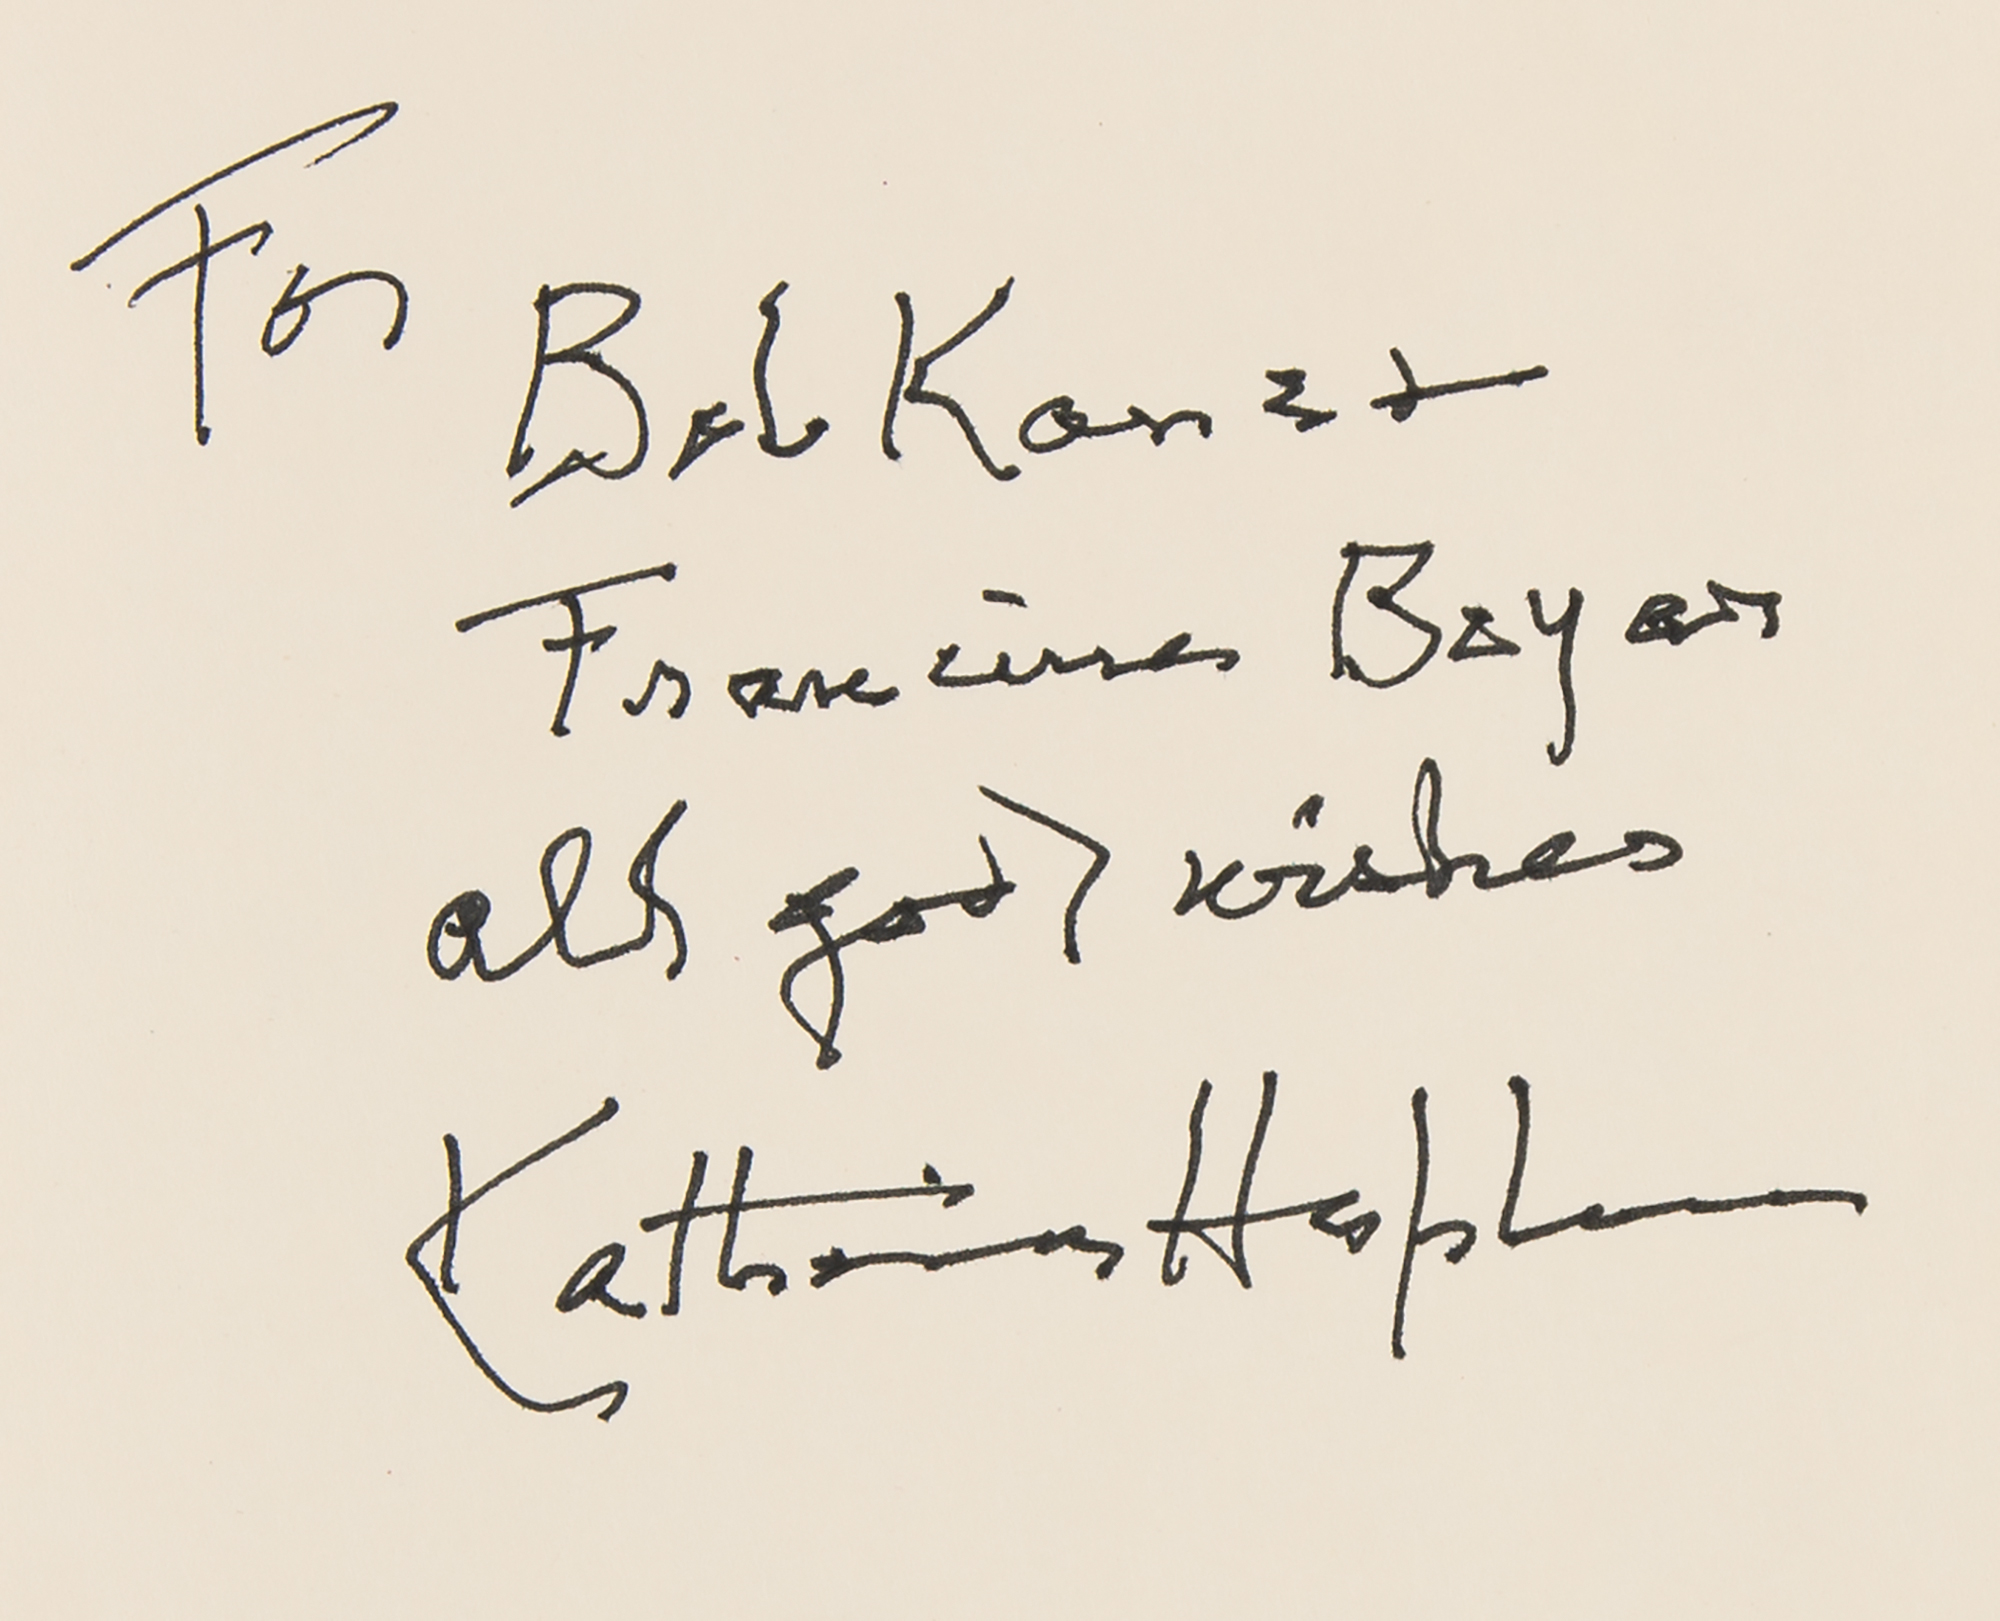 For
Bob Kane +
Francine Bayar
all good wishes
Katharine Hepburn